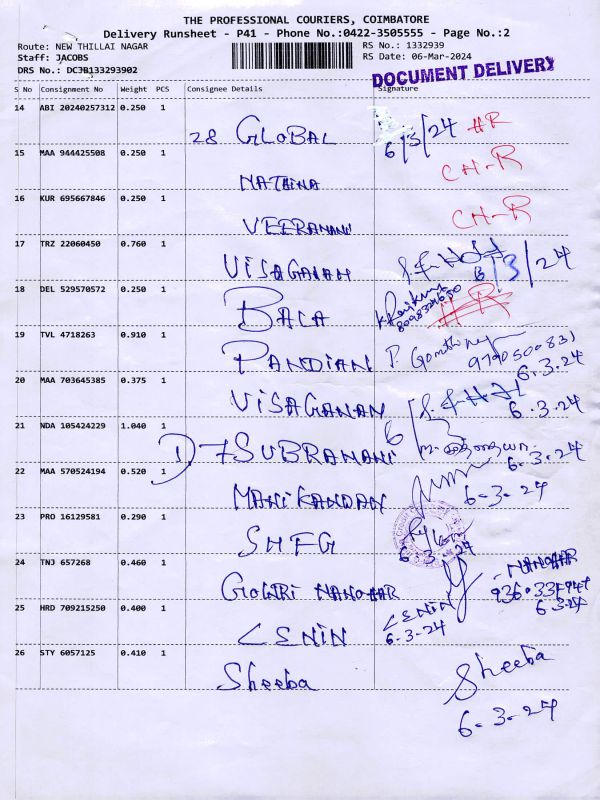 THE PROFESSIONAL COURIERS, COIMBATORE
Delivery Runsheet - P41 - Phone No.:0422-3505555 - Page No.:2
Route: NEW THILLAI NAGAR
RS No.: 1332939
Staff: JACOBS
RS Date: 06-Mar-2024
DRS No.: DCJB133293902
DOCUMENT DELIVERY
S No Consignment No Weight PCS Consignee Details Signature
14 ABI 20240257312 0.250 1
28 GLOBAL 6/3/24 HR
15 MAA 944425508 0.250 1
CH-R
16 KUR 695667846 0.250 1
CH-R
VEERAMANI
17 TRZ 22060450 0.760 1
VISAGANAN 6/3/24
18 DEL 529570572 0.250 1
BALA
19 TVL 4718263 0.910 1
PANDIAN
6.3.24
20 MAA 703645385 0.375 1
VISAGANAN 6-3-24
21 NDA 105424229 1.040 1
SUBRAMANI 6-3-24
22 MAA 570524194 0.520 1
MANIKANDAN 6-3-24
23 PRO 16129581 0.290 1
SHFG 6-3-24
24 TNJ 657268 0.460 1
GOWRI MANOHAR MANOHAR
6.3.24
25 HRD 709215250 0.400 1
LENIN LENIN
6-3-24
26 STY 6057125 0.410 1
Sheeba Sheeba
6-3-24